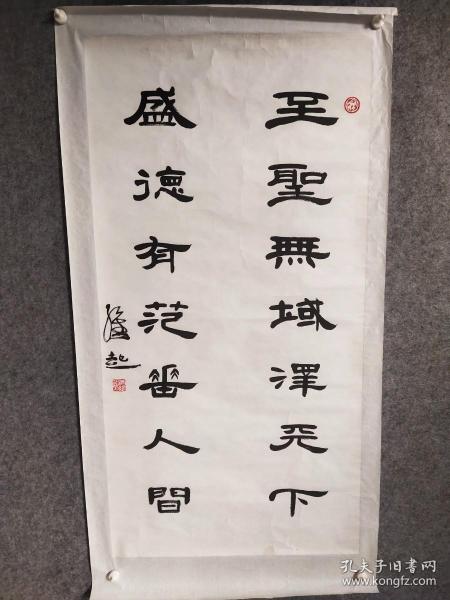 至聖無域澤天下
盛德有范垂人間
起
孔夫子旧书网
www.kongfz.com